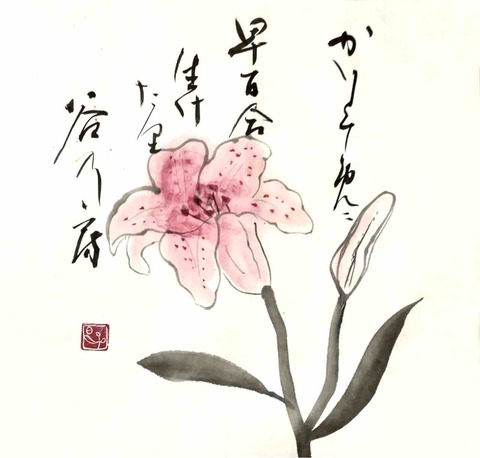 かりそめに
早百合
生け
た里
谷乃房